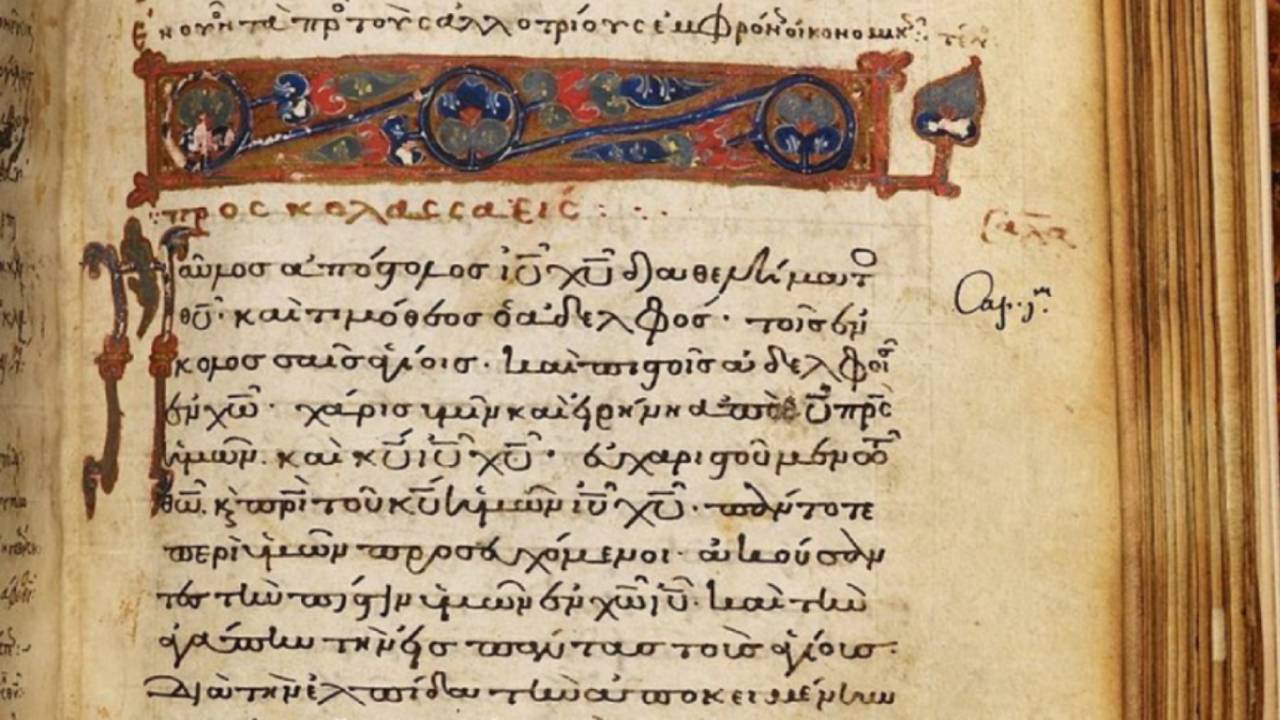 ἐν οὐν τὰ πρ τοὺς ἀλλοτρίους ἐμφρόν οἰκονομικ
προς κολασσαεις
Παῦλος ἀπόστολος ἰῦ χῦ διὰ θελήματο
θῦ· καὶ τιμόθεος ὁ ἀδελφός· τοῖς ἐν
κολοσσαῖς ἁγίοις· καὶ πιστοῖς ἀδελφοῖ
ἐν χῶ· χάρις ὑμῖν καὶ εἰρήνη ἀπὸ θῦ πρς
ἡμῶν. καὶ κῦ ἰῦ χῦ· εὐχαριστοῦμεν τῶ
θῶ. κ πρὶ τοῦ κῦ ἡμῶν ἰῦ χῦ· πάντοτε
περὶ ὑμῶν προσευχόμενοι· ἀκούσαν
τες τὴν πίστιν ὑμῶν ἐν χῶ ἰῦ· καὶ τὴν
ἀγάπην τὴν εἰς πάντας τοὺς ἁγίους·
Διὰ τὴν ἐλπίδα τὴν ἀποκειμένην
Cap. j.m